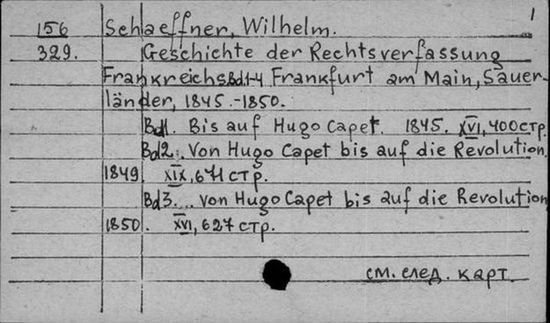 1
156 Schaeffner, Wilhelm.
329. Geschichte der Rechtsverfassung
Frankreichs Bd1-4 Frankfurt am Main, Sauer-
länder, 1845.-1850.
Bd1. Bis auf Hugo Capet. 1845. XVI, 400 стр.
Bd2. Von Hugo Capet bis auf die Revolution
1849. XIX, 671 стр.
Bd3... von Hugo Capet bis auf die Revolution
1850. XVI, 627 стр.
см. след. карт.